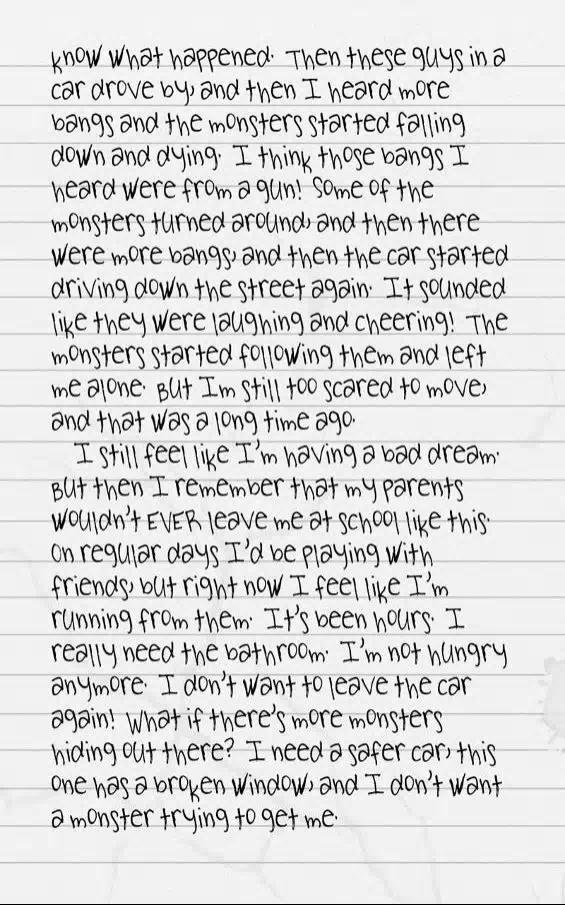 know what happened. Then these guys in a
car drove by, and then I heard more
bangs and the monsters started falling
down and dying. I think those bangs I
heard were from a gun! Some of the
monsters turned around, and then there
were more bangs, and then the car started
driving down the street again. It sounded
like they were laughing and cheering! The
monsters started following them and left
me alone. But Im still too scared to move,
and that was a long time ago.
I still feel like I'm having a bad dream.
But then I remember that my parents
wouldn't EVER leave me at school like this.
On regular days I'd be playing with
friends, but right now I feel like I'm
running from them. It's been hours. I
really need the bathroom. I'm not hungry
anymore. I don't want to leave the car
again! What if there's more monsters
hiding out there? I need a safer car, this
one has a broken window, and I don't want
a monster trying to get me.